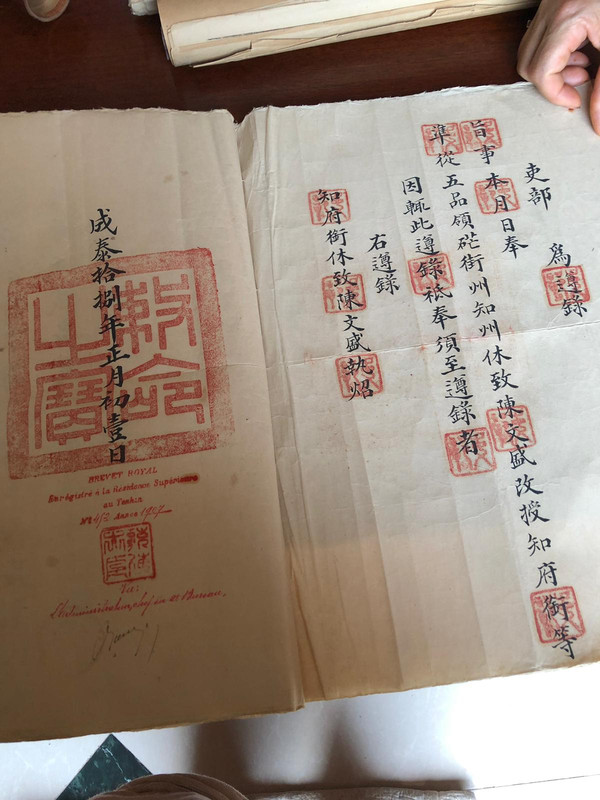 吏部 爲遵錄
旨事本月日奉
準從五品領硭街州知州休致陳文盛改授知府銜等
因輒此遵錄祗奉須至遵錄者
右遵錄
知府銜休致陳文盛執炤
成泰拾捌年正月初壹日
敕命之寶
BREVET ROYAL
Enregistré à la Résidence Supérieure
au Tonkin
No Année 1927